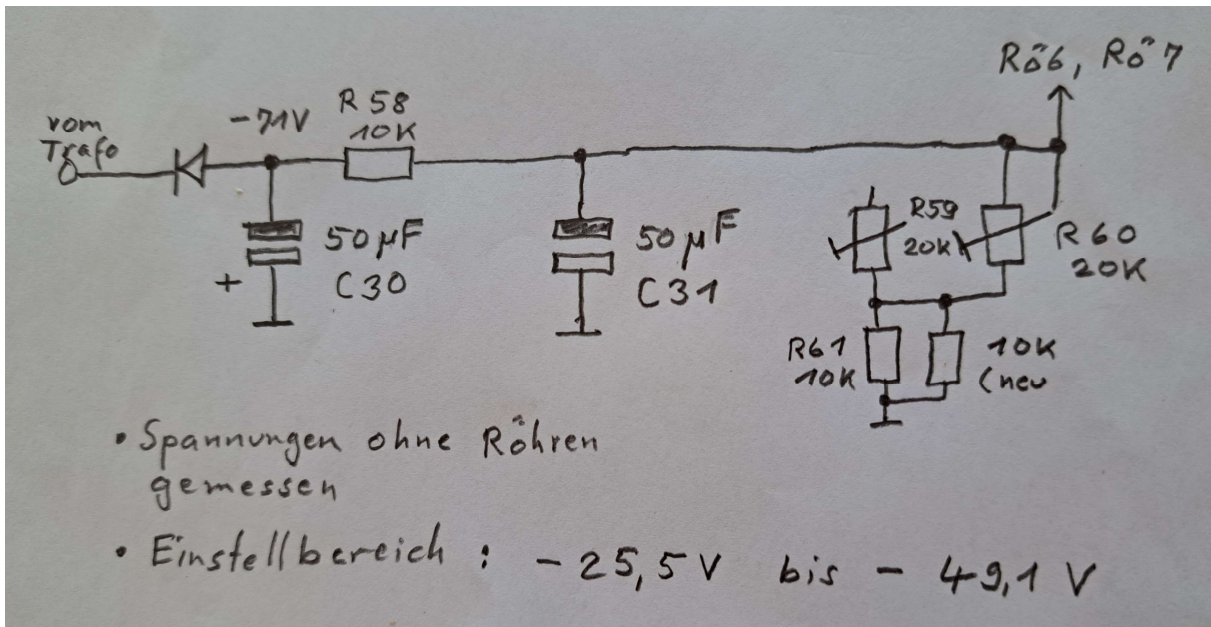 vom
Trafo
-71V
R 58
10K
Rö6, Rö7
+
50µF
C30
50µF
C31
R59
20K
R60
20K
R61
10K
10K
(neu
• Spannungen ohne Röhren
gemessen
• Einstellbereich : - 25,5V bis - 49,1 V